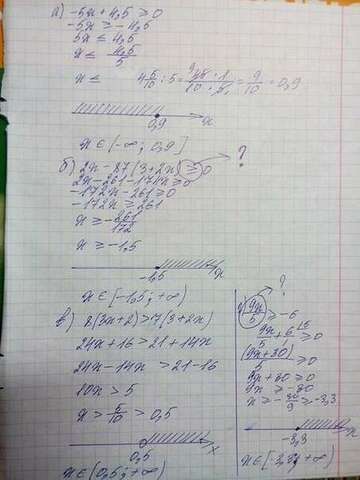 а) -5x + 4,5 ≥ 0
-5x ≥ -4,5
5x ≤ 4,5
x ≤ 4,5/5
x ≤ 4 5/10 : 5 = 45 · 1 / 10 · 5 = 9/10 = 0,9
0,9 x
x ∈ [-∞; 0,9]
б) 2x - 87(3+2x) ≥ 0 ?
2x - 261 - 174x ≥ 0
-172x - 261 ≥ 0
-172x ≥ 261
x ≥ -261/172
x ≥ -1,5
-1,5 x
x ∈ [-1,5; +∞)
в) 8(3x+2) > 7(3+2x)
24x + 16 > 21 + 14x
24x - 14x > 21 - 16
10x > 5
x > 5/10 > 0,5
0,5 x
x ∈ (0,5; +∞)
?
9x/5 ≥ -6
9x/5 + 6/1 ≥ 0
(9x+30)/5 ≥ 0
9x + 30 ≥ 0
9x ≥ -30
x ≥ -30/9 ≥ -3,3
-3,3
x ∈ [-3,3; +∞)